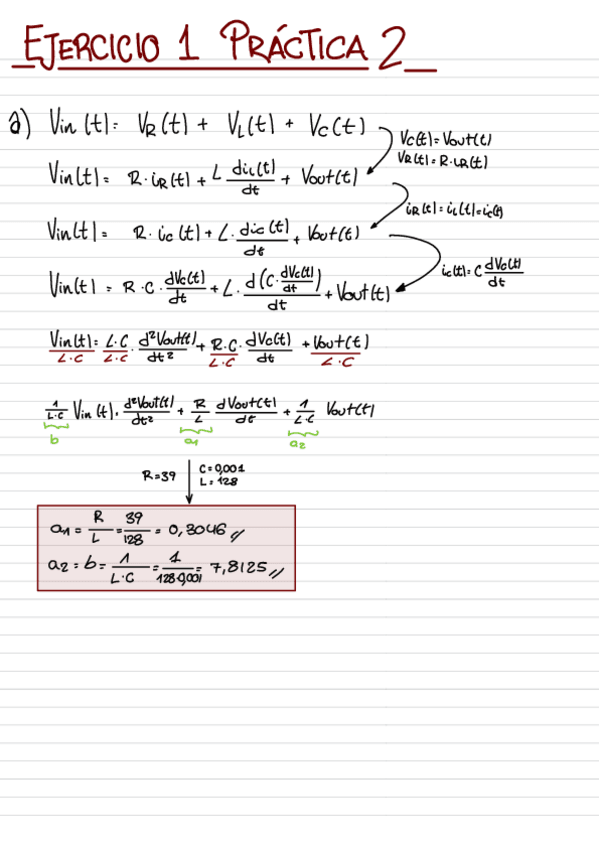 EJERCICIO 1 PRÁCTICA 2
a) Vin(t) = VR(t) + VL(t) + VC(t)
Vc(t) = Vout(t)
VR(t) = R·iR(t)
Vin(t) = R·iR(t) + L diL(t)/dt + Vout(t)
iR(t) = iL(t) = ic(t)
Vin(t) = R·ic(t) + L·dic(t)/dt + Vout(t)
ic(t) = C dVc(t)/dt
Vin(t) = R·C·dVc(t)/dt + L·d(C·dVc(t)/dt)/dt + Vout(t)
Vin(t)/L·C = L·C/L·C · d²Vout(t)/dt² + R·C·/L·C dVc(t)/dt + Vout(t)/L·C
1/L·C Vin(t) · d²Vout(t)/dt² + R/L dVout(t)/dt + 1/L·C Vout(t)
b a1 a2
R=39 C=0,001
L=128
a1 = R/L = 39/128 = 0,3046 //
a2 = b = 1/L·C = 1/128·0,001 = 7,8125 //